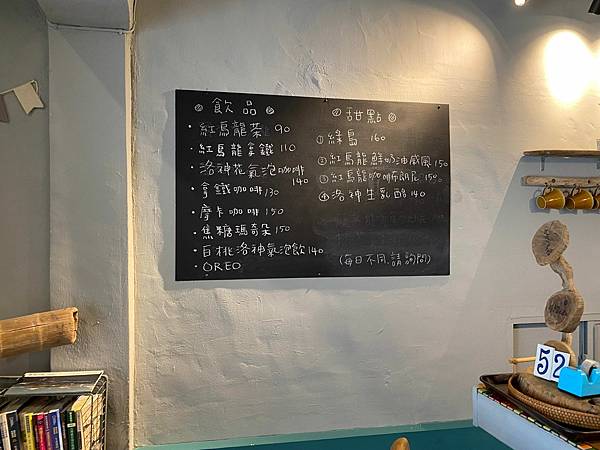 飲品
・紅烏龍茶 90
・紅烏龍拿鐵 110
・洛神花氣泡咖啡 140
・拿鐵咖啡 130
・摩卡咖啡 150
・焦糖瑪奇朵 150
・白桃洛神氣泡飲 140
・OREO
甜點
① 綠島 160
② 紅烏龍鮮奶油戚風 150
③ 紅烏龍咖啡布朗尼 150
④ 洛神生乳酪 140
(每日不同,請詢問)
52